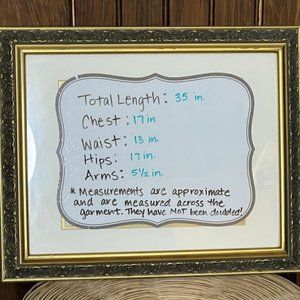 Total Length: 35 in.
Chest: 17 in
Waist: 13 in.
Hips: 17 in.
Arms: 5½ in.
* Measurements are approximate
and are measured across the
garment. They have NOT been doubled!